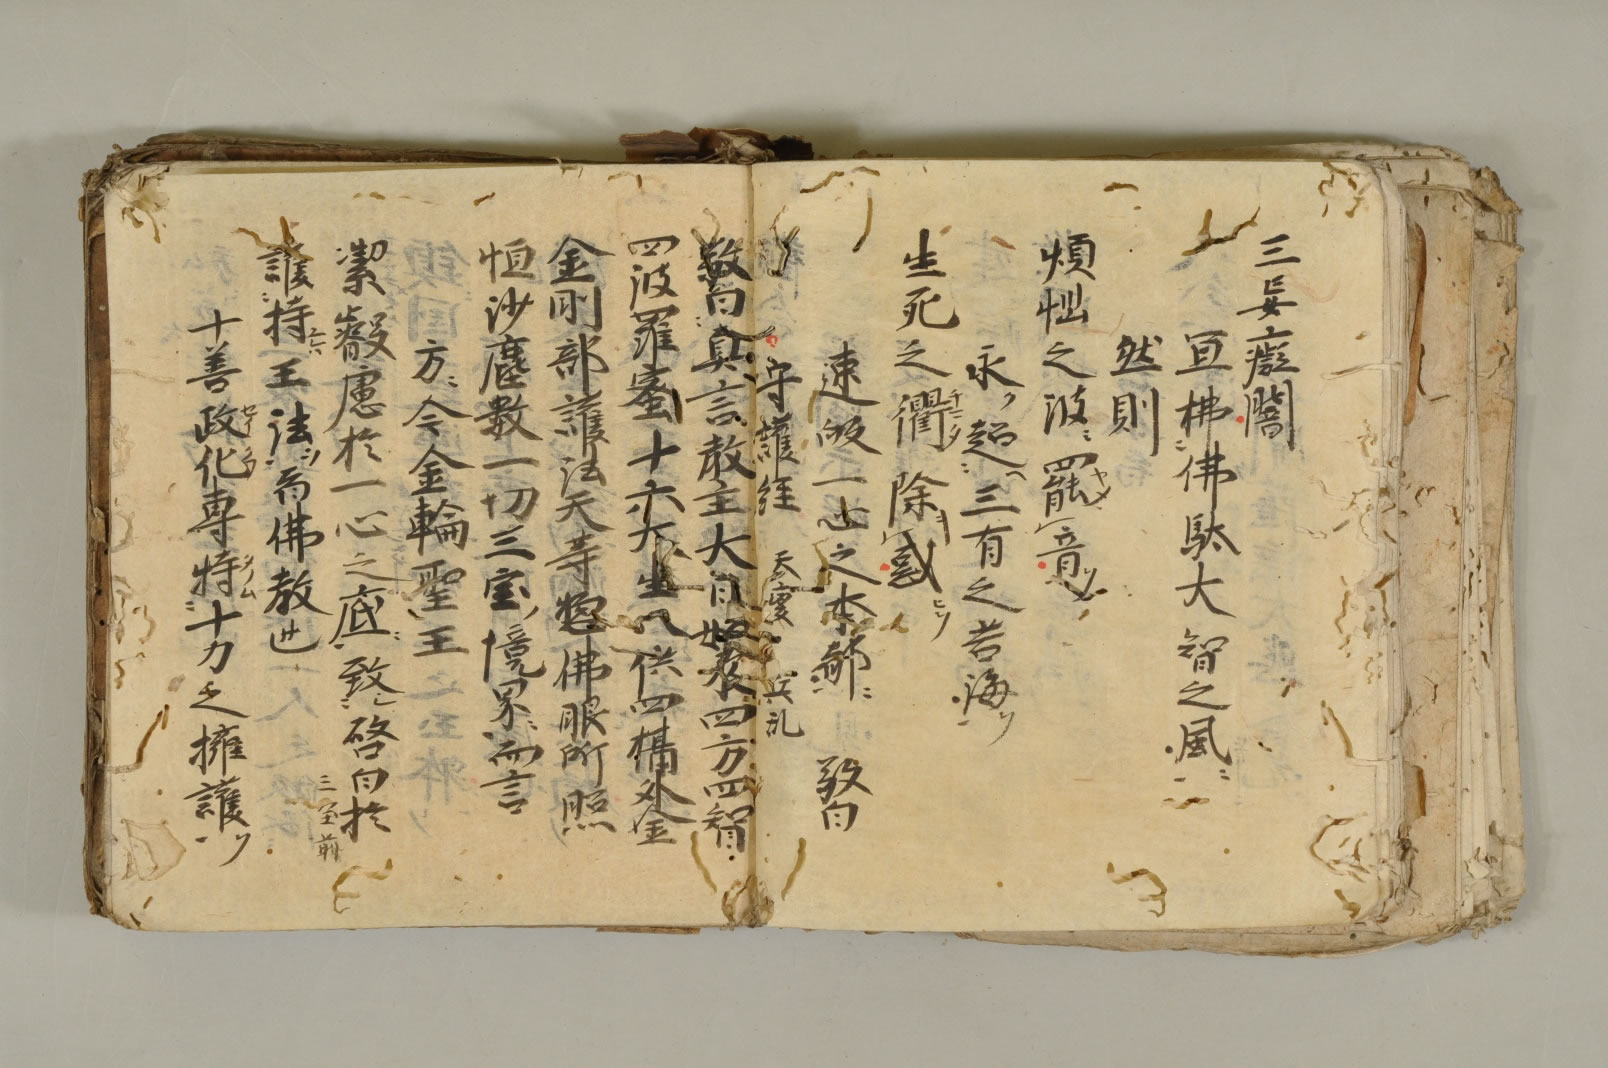 三妄癡闇
宜拂佛駄大智之風
然則
煩惱之波罷音
永超三有之苦海
生死之衢除惑
速皈一世之本誓 敬白
守護経 天変 兵乱
敬白真言教主大日如来四方四智
四波羅蜜十六大生八供四攝外金
金剛部護法天等惣佛眼所照
恒沙塵数一切三宝境界而言
方今金輪聖王
潔叡慮於一心之底致啓白於
三宝前
護持王法为佛教也
十善政化専恃十力之擁護